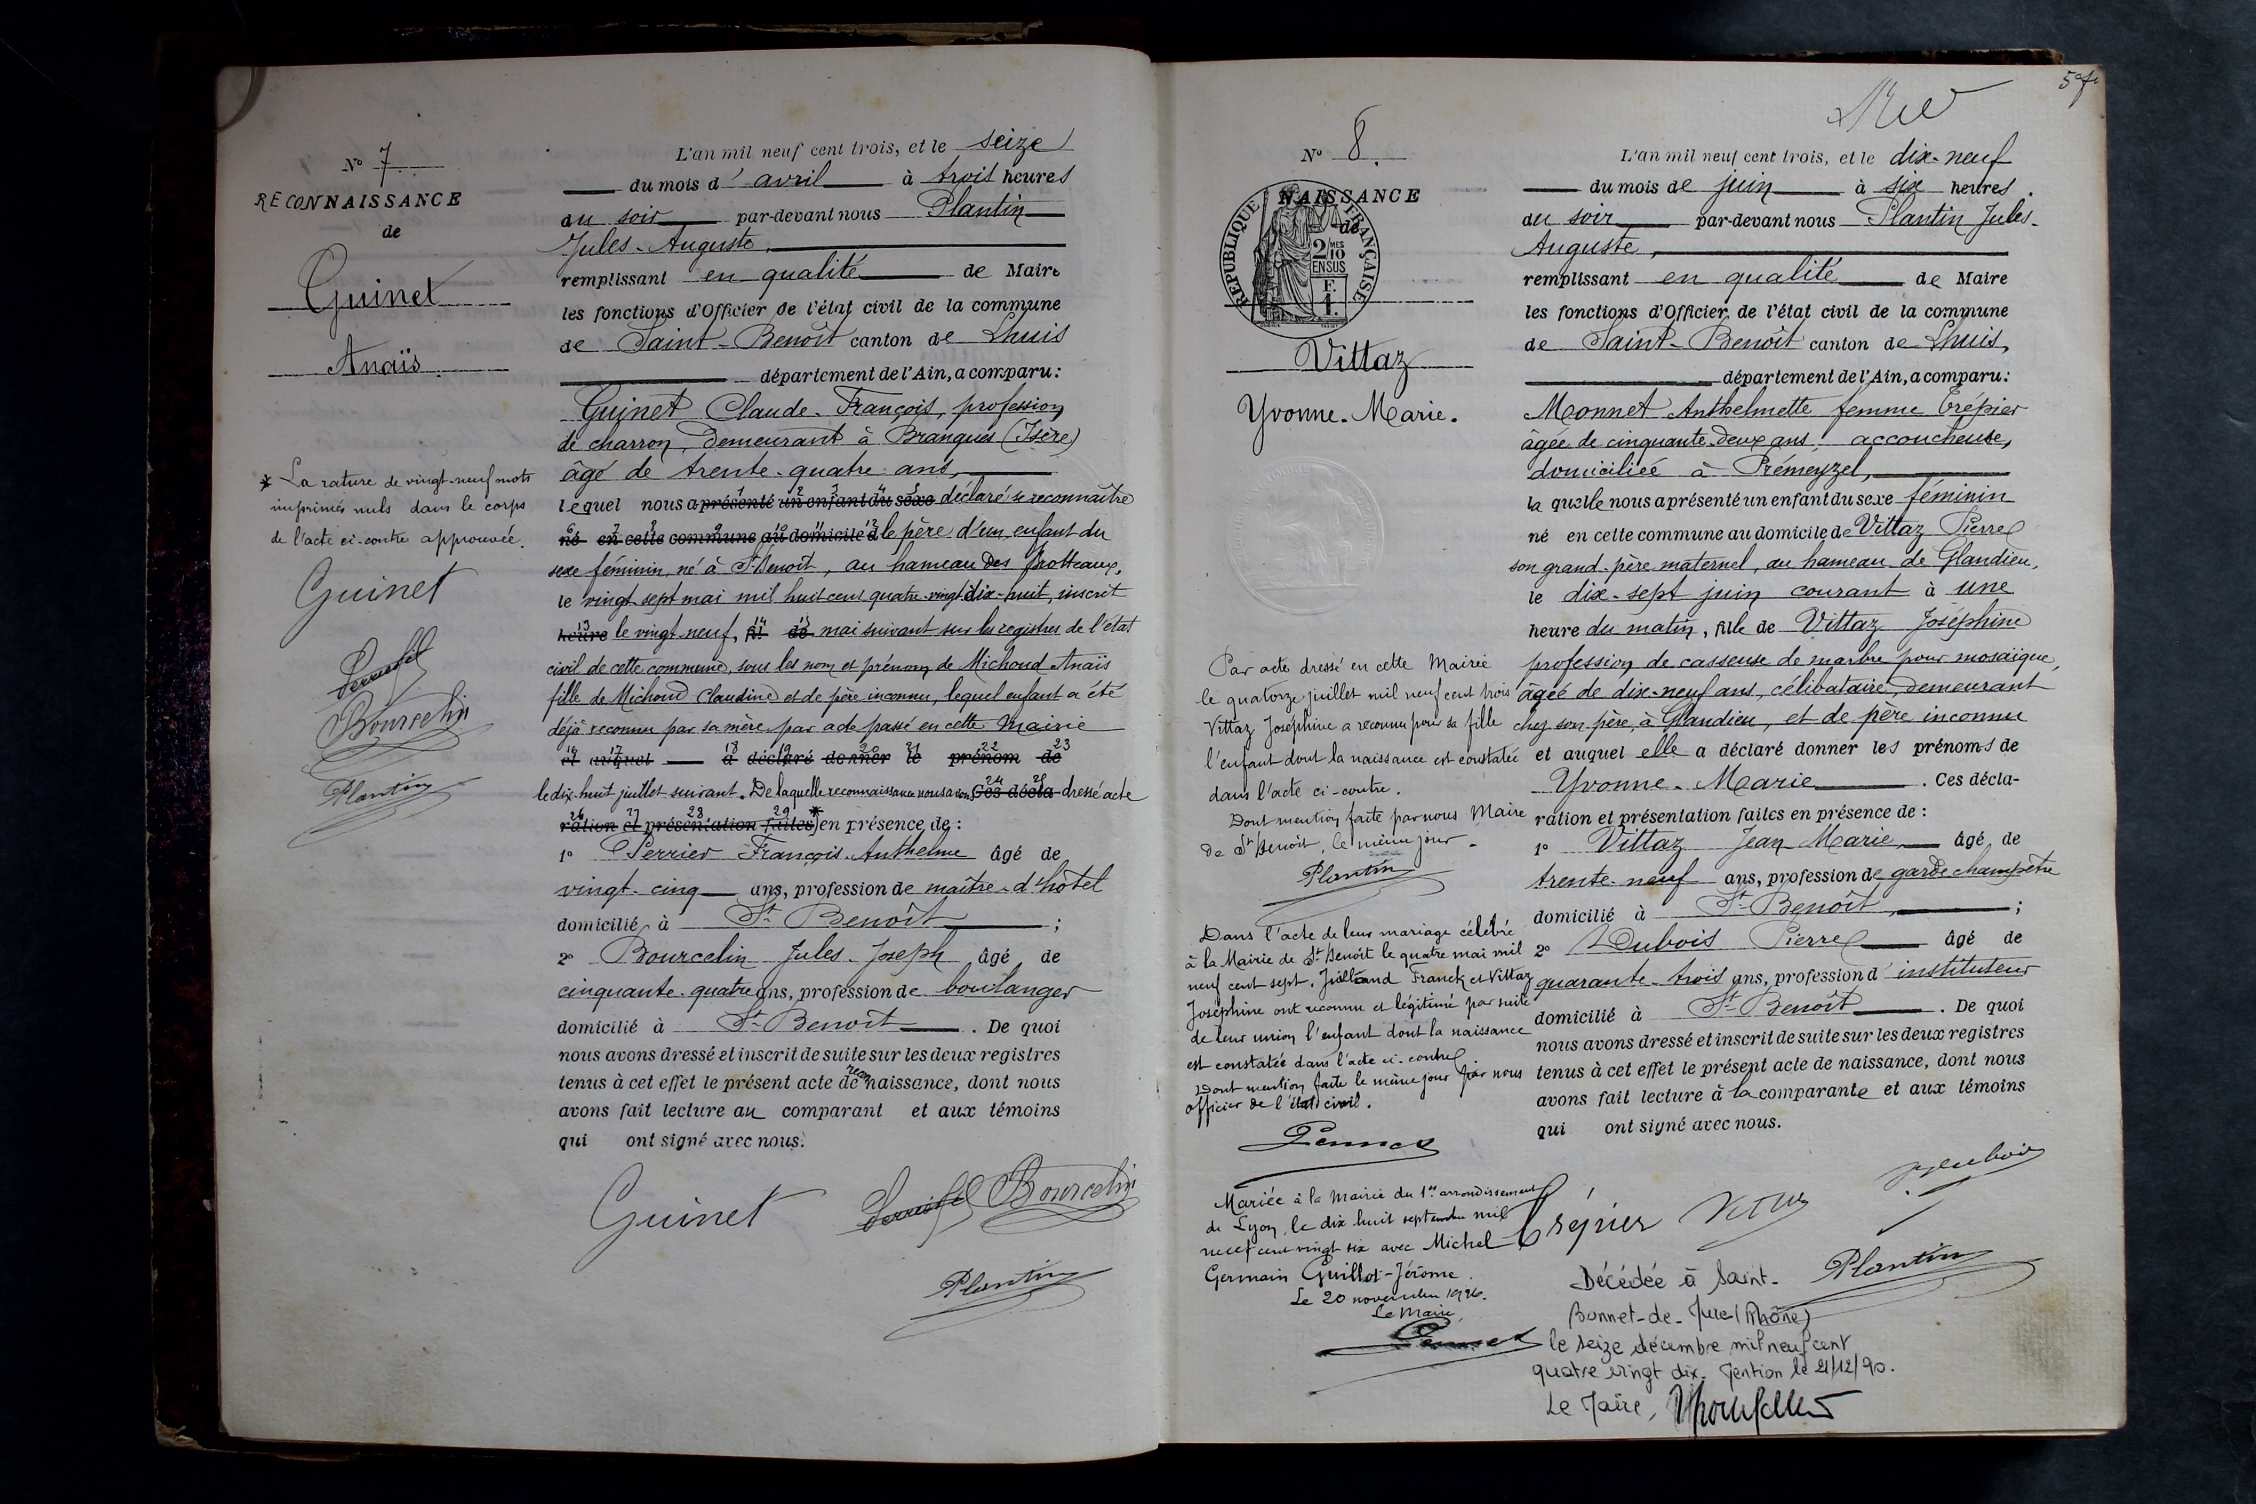 N° 7
RECONNAISSANCE
de
Guinet
Anaïs
* La rature de vingt-neuf mots
imprimés nuls dans le corps
de l'acte ci-contre approuvée.
Guinet
Bourcelin
Plantin
L'an mil neuf cent trois, et le seize
du mois d'avril à trois heures
du soir par-devant nous Plantin
Jules-Auguste,
remplissant en qualité de Maire
les fonctions d'Officier de l'état civil de la commune
de Saint-Benoît canton de Lhuis
département de l'Ain, a comparu :
Guinet Claude-François, profession
de charron, demeurant à Brangues (Isère)
âgé de trente-quatre ans,
lequel nous a présenté un enfant du sexe déclaré se reconnaître
1 2 3 4 5
né en cette commune au domicile d le père d'un enfant du
6 7 8 9 10 11 12
sexe féminin, né à St Benoît, au hameau des Brotteaux,
le vingt-sept mai mil huit cent quatre-vingt-dix-huit, inscrit
heure le vingt-neuf, fil de mai suivant sur les registres de l'état
13 14 15
civil de cette commune, sous les nom et prénom de Michoud Anaïs
fille de Michoud Claudine et de père inconnu, lequel enfant a été
déjà reconnu par sa mère par acte passé en cette Mairie
et auquel a déclaré donner le prénom de
16 17 18 19 20 21 22 23
le dix-huit juillet suivant. De laquelle reconnaissance nous avons Ces décla dressé acte
24 25
ration et présentation faites * en présence de :
26 27 28 29
1° Perrier François-Anthelme âgé de
vingt-cinq ans, profession de maître-d'hôtel
domicilié à St Benoît ;
2° Bourcelin Jules-Joseph âgé de
cinquante-quatre ans, profession de boulanger
domicilié à St Benoît. De quoi
nous avons dressé et inscrit de suite sur les deux registres
tenus à cet effet le présent acte de reconnaissance, dont nous
avons fait lecture au comparant et aux témoins
qui ont signé avec nous.
Guinet Bourcelin
Plantin
N° 8.
NAISSANCE
de
RÉPUBLIQUE FRANÇAISE
2 MES
10
EN SUS
F.
1.
Vittaz
Yvonne-Marie.
Par acte dressé en cette Mairie
le quatorze juillet mil neuf cent trois
Vittaz Joséphine a reconnu pour sa fille
l'enfant dont la naissance est constatée
dans l'acte ci-contre.
Dont mention faite par nous Maire
de St Benoît, le même jour.
Plantin
Dans l'acte de leur mariage célébré
à la Mairie de St Benoît le quatre mai mil
neuf cent sept, Juilland Franck et Vittaz
Joséphine ont reconnu et légitimé par suite
de leur union l'enfant dont la naissance
est constatée dans l'acte ci-contre.
Dont mention faite le même jour par nous
officier de l'état civil.
Mariée à la mairie du 1er arrondissement
de Lyon, le dix huit septembre mil
neuf cent vingt six avec Michel
Germain Guillot-Jérôme.
Le 20 novembre 1926.
Le Maire,
L'an mil neuf cent trois, et le dix-neuf
du mois de juin à six heures
du soir par-devant nous Plantin Jules-
Auguste,
remplissant en qualité de Maire
les fonctions d'Officier de l'état civil de la commune
de Saint-Benoît canton de Lhuis,
département de l'Ain, a comparu :
Monnet Anthelmette femme Trépier
âgée de cinquante-deux ans, accoucheuse,
domiciliée à Prémeyzel,
la quelle nous a présenté un enfant du sexe féminin
né en cette commune au domicile de Vittaz Pierre
son grand-père maternel, au hameau de Glandieu,
le dix-sept juin courant à une
heure du matin, fille de Vittaz Joséphine
profession de casseuse de marbre pour mosaïque,
âgée de dix-neuf ans, célibataire, demeurant
chez son père, à Glandieu, et de père inconnu
et auquel elle a déclaré donner les prénoms de
Yvonne-Marie. Ces décla-
ration et présentation faites en présence de :
1° Vittaz Jean Marie âgé de
trente-neuf ans, profession de garde champêtre
domicilié à St Benoît, ;
2° Dubois Pierre âgé de
quarante-trois ans, profession d'instituteur
domicilié à St Benoît. De quoi
nous avons dressé et inscrit de suite sur les deux registres
tenus à cet effet le présent acte de naissance, dont nous
avons fait lecture à la comparante et aux témoins
qui ont signé avec nous.
Trépier
Plantin
Décédée à Saint-
Bonnet-de-Mure (Rhône)
le seize décembre mil neuf cent
quatre vingt dix. Mention le 21/12/90.
Le Maire,